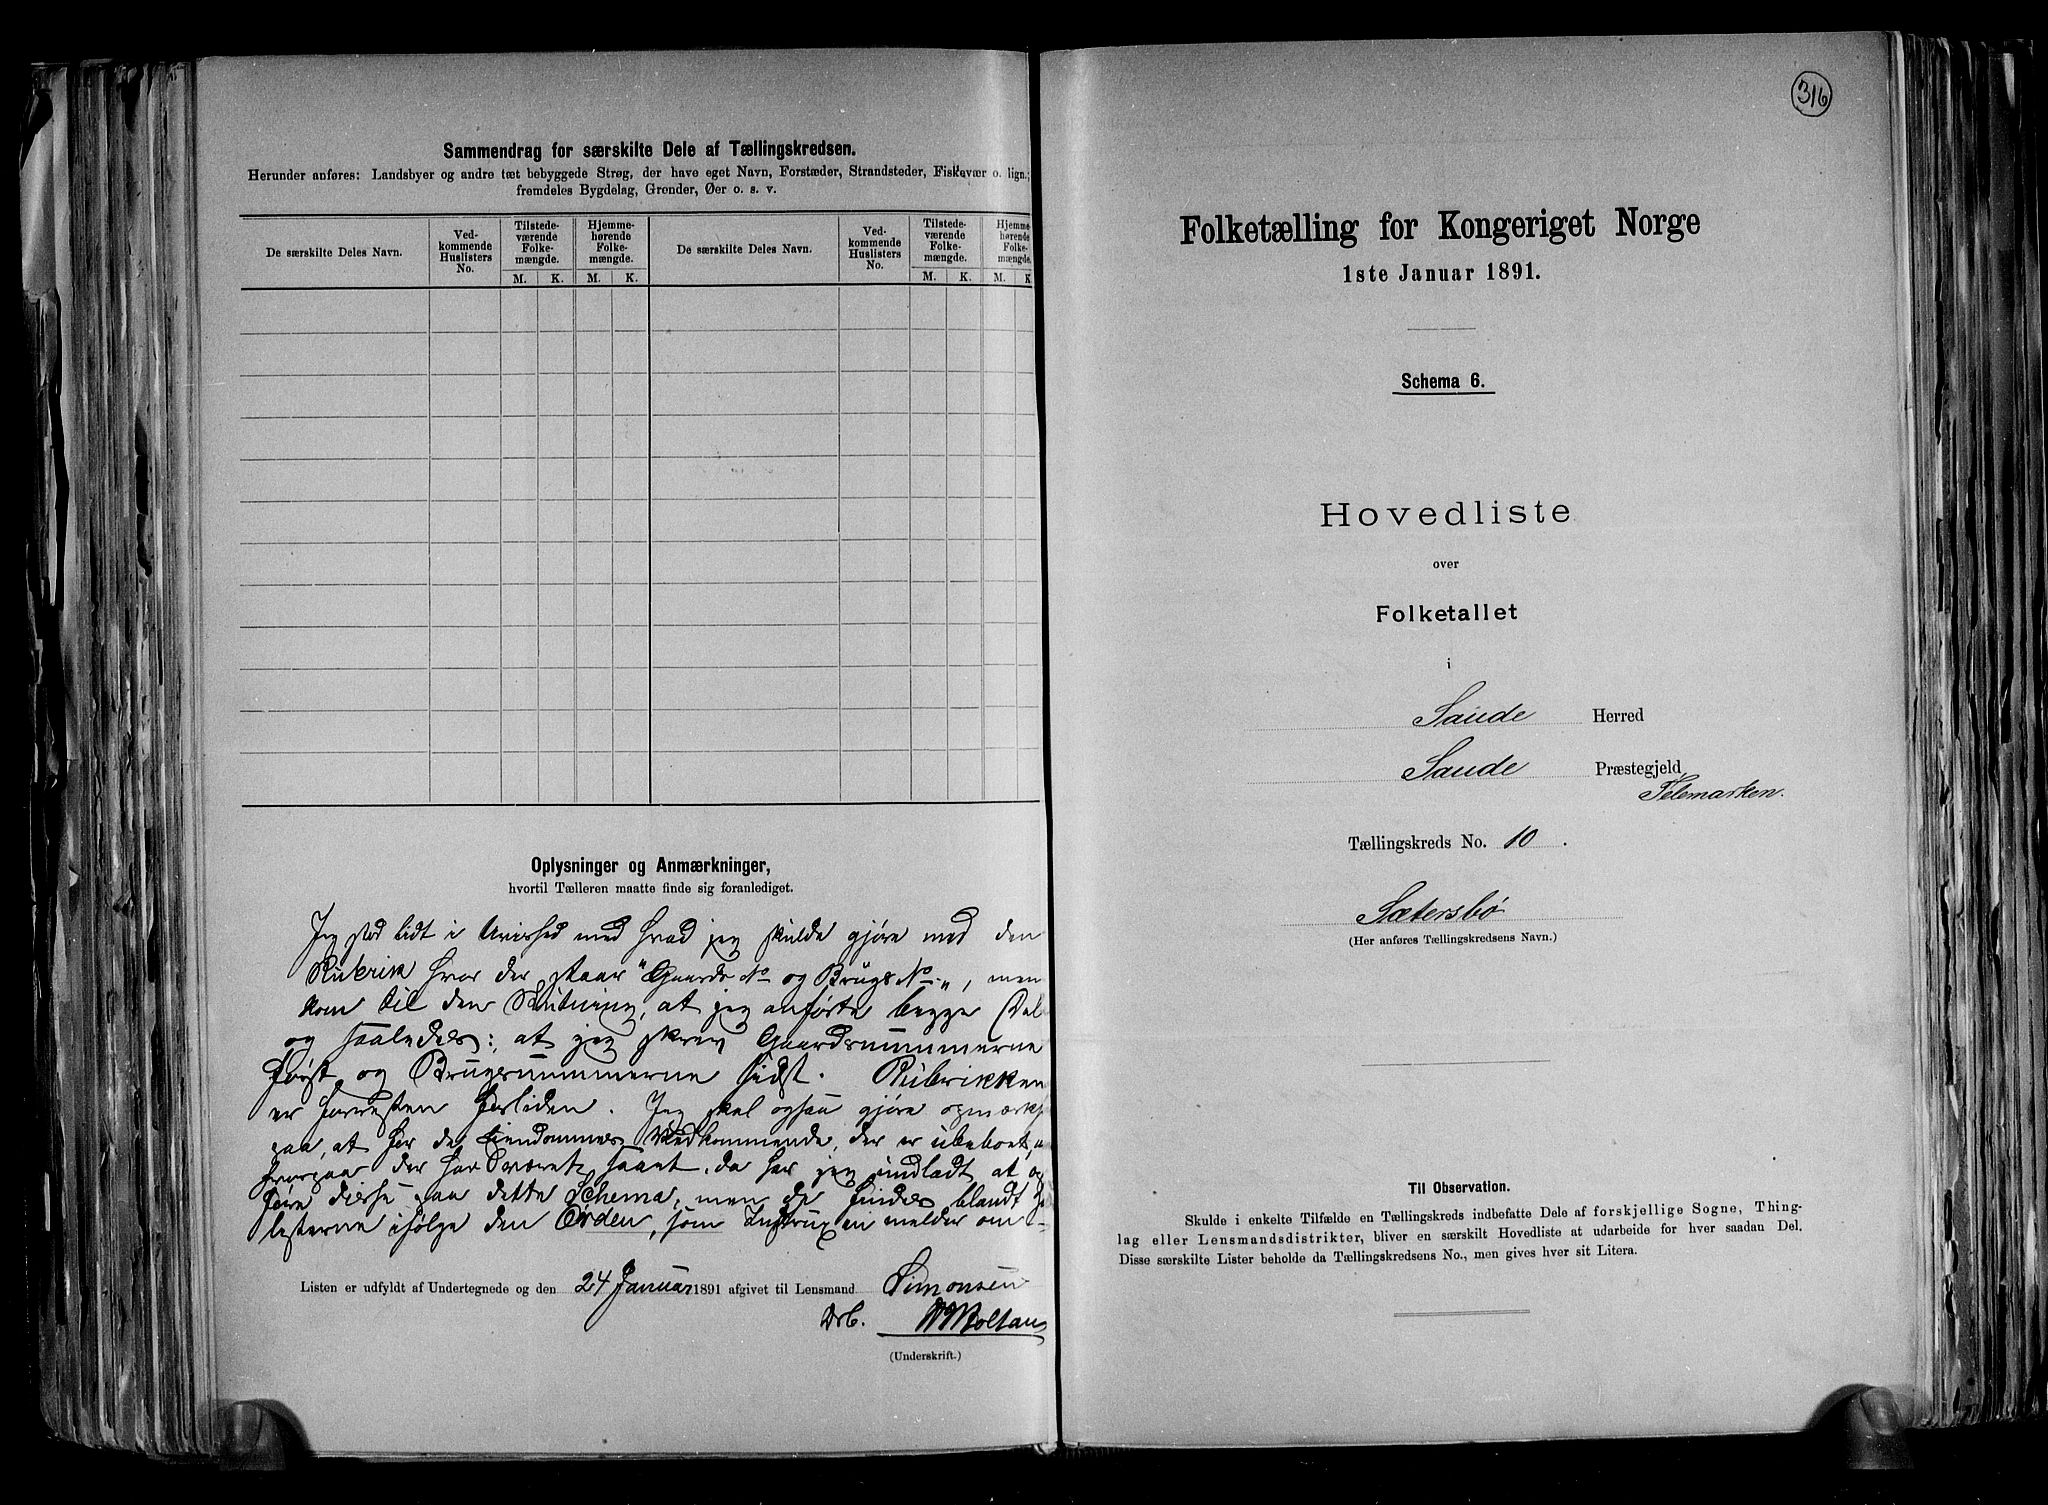 Sammendrag for særskilte Dele af Tællingskredsen.
Herunder anføres: Landsbyer og andre tæt bebyggede Strøg, der have eget Navn, Forstæder, Strandsteder, Fiskevær o. lign.;
fremdeles Bygdelag, Grender, Øer o. s. v.
De særskilte Deles Navn.
Ved-
kommende
Huslisters
No.
Tilstede-
værende
Folke-
mængde.
Hjemme-
hørende
Folke-
mængde.
De særskilte Deles Navn.
Ved-
kommende
Huslisters
No.
Tilstede-
værende
Folke-
mængde.
Hjemme-
hørende
Folke-
mængde.
M. K. M. K. M. K. M. K
Oplysninger og Anmærkninger,
hvortil Tælleren maatte finde sig foranlediget.
Jeg stod lidt i Uvished med hvad jeg skulde gjøre med den
Rubrik hvor der staar "Gaards No og Brugs No", men
kom til den Slutning, at jeg anførte begge Del
og saaledes: at jeg skrev Gaardsnummerne
først og Brugsnummerne sidst. Rubrikken
er forresten forliden. Jeg skal ogsaa gjøre opmærks
paa, at for de Eiendommes Vedkommende, der er ubeboet,
hvorpaa der har været saaet, da har jeg undladt at op
føre disse paa dette Schema, men de findes blandt
listerne ifølge den Orden, som Instruxen melder om
Listen er udfyldt af Undertegnede og den 24 Januar 1891 afgivet til Lensmand Simonsen
(Underskrift.)
316
Folketælling for Kongeriget Norge
1ste Januar 1891.
Schema 6.
Hovedliste
over
Folketallet
i
Saude Herred
Saude Præstegjeld
Telemarken.
Tællingskreds No. 10.
Sætersbø
(Her anføres Tællingskredsens Navn.)
Til Observation.
Skulde i enkelte Tilfælde en Tællingskreds indbefatte Dele af forskjellige Sogne, Thing-
lag eller Lensmandsdistrikter, bliver en særskilt Hovedliste at udarbeide for hver saadan Del.
Disse særskilte Lister beholde da Tællingskredsens No., men gives hver sit Litera.